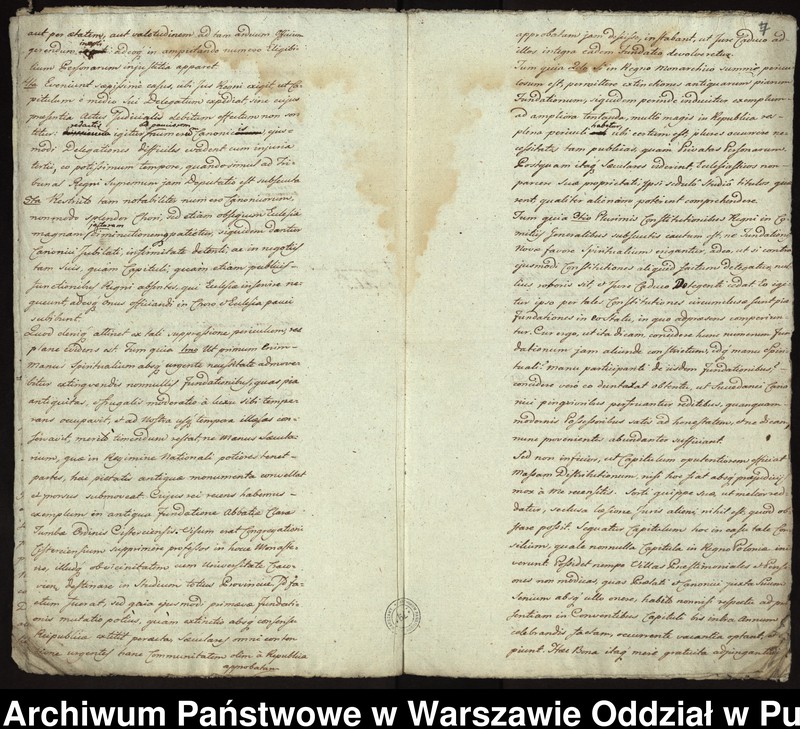 aut per ætatem, aut valetudinem ad tam arduum Officium
gerendum inepti adeoq in amputando numero Eligibi-
lium Personarum injustitia apparet.
Eveniunt sæpissime casus, ubi jus Regni exigit, ut Ca-
pitulum e medio sui Delegatum expediat, sine cujus
præsentia Actus Judicialis debitum effectum non sor-
titur: igitur numero Canonicis, ejus-
modi Delegationes difficiles evadent cum injuria
tertii, eo potissimum tempore, quando simul ad Tri-
bunal Regni Supremum jam Deputatio est subsecuta
Restricto tam notabiliter numero Canonicorum,
nonmodo splendor Chori, sed etiam obsequium Ecclesiæ
magnam jacturam patietur, siquidem dantur
Canonici Jubilati, infirmitate detenti, ac in negotiis
tam suis, quam Capituli, quam etiam publicis
functionibus Regni absentes, qui Ecclesiæ inservire ne-
queunt, adeoq Onus officiandi in Choro et Ecclesia pauci
subibunt.
Quod deniq attinet ex tali suppressione, periculum, res
plane evidens est. Tum quia 1mo Ut primum Com-
Manus Spiritualium absq urgente necessitate admove-
bitur extinguendis nonnullis fundationibus, quas pia
antiquitas, et frugalis moderatio à luxu sibi tempe-
rans occupavit, et ad Nostra usq tempora illæsas con-
servavit, merito timendum restat, ne Manus Sæcula-
rium, quæ in Regimine Nationali potiores habet
partes, hæc pietatis antiquæ monumenta convellat
et prorsus submoveat. Cujus rei recens habemus
exemplum in antiqua Fundatione Abbatiæ Claræ
Tumbæ Ordinis Cisterciensis. Visum erat Congregationi
Cisterciensium supprimere professos in hocce Monaste-
rio, illudq ob vicinitatem cum Universitate Craco-
vien. destinare in Studium totius Provinciæ. Id fa-
ctum fuerat, sed quia ejusmodi primævæ fundati-
onis mutatio potius, quam extinctio absq consensu
Reipublicæ extitit peracta, Sæculares omni conten-
tione urgentes hanc Communitatem olim à Republica
approbatam
7
approbatam jam desiisse, instabant, ut Jure Caduco ad
illos integra eadem fundatio devolveretur.
Tum quia 2do Si in Regno Monarchico summo pericu-
losum est, permittere extinctiones antiquarum piarum
Fundationum, siquidem perinde inducitur exemplum
ad ampliora tentanda, multo magis in Republica res
plena periculi habetur ubi certum est, plures occurrere ne-
cessitates tam publicas, quam Privatas Personarum.
Postquam itaq Sæculares viderint, Ecclesiasticos non
parcere suæ proprietati, ipsi sedulo studio titulos quæ-
rent qualiter alienam poterint comprehendere.
Tum quia 3tio Plurimis Constitutionibus Regni in Co-
mitiis Generalibus subsecutis cautum est, ne Fundationes
Novæ favore Spiritualium erigantur, adeo, ut si contra
ejusmodi Constitutiones aliquid factum delegatur, nul-
lius roboris sit et Jure Caduco Delegenti cedat. Co igi-
tur ipso per tales Constitutiones circumclusæ sunt piæ
fundationes in eo statu, in quo adpræsens comperiun-
tur. Cur ergo, ut ita dicam, concidere hunc numerum Fun-
dationum jam aliunde constrictum, idq manu Spiri-
tuali: manu participanti de iisdem Fundationibus?
concidere vero eo duntaxat obtentu, ut succedanei Cano-
nici pinguioribus perfruantur reditibus, quanquam
modernis Possessoribus satis ad honestatem, et ne dicam,
nunc provenientia abundanter sufficiant.
Sed non inficior, ut Capitulum opulentiorem efficiat
Massam Distributionum, nisi hoc fiat absq præjudicijs
mox à Me recensitis. Sorti quippe suæ, ut melior red-
datur, seclusa læsione juris alieni, nihil est, quod ob-
stare possit. Sequatur Capitulum hoc in casu tale Con-
silium, quale nonnulla Capitula in Regno Poloniæ ini-
verunt. Possidet nempe Villas Præstimoniales et Pensi-
ones non modicas, quas Prælati et Canonici juxta suum
Senium absq ullo onere, habito nonnisi respectu ad præ-
sentiam in Conventibus Capituli bis intra Annum
celebrandis factam, occurrente vacantia optant, et
piunt. Hæc Bona itaq meré gratuita adjungantur
Archiwum Państwowe w Warszawie Oddział w Pu